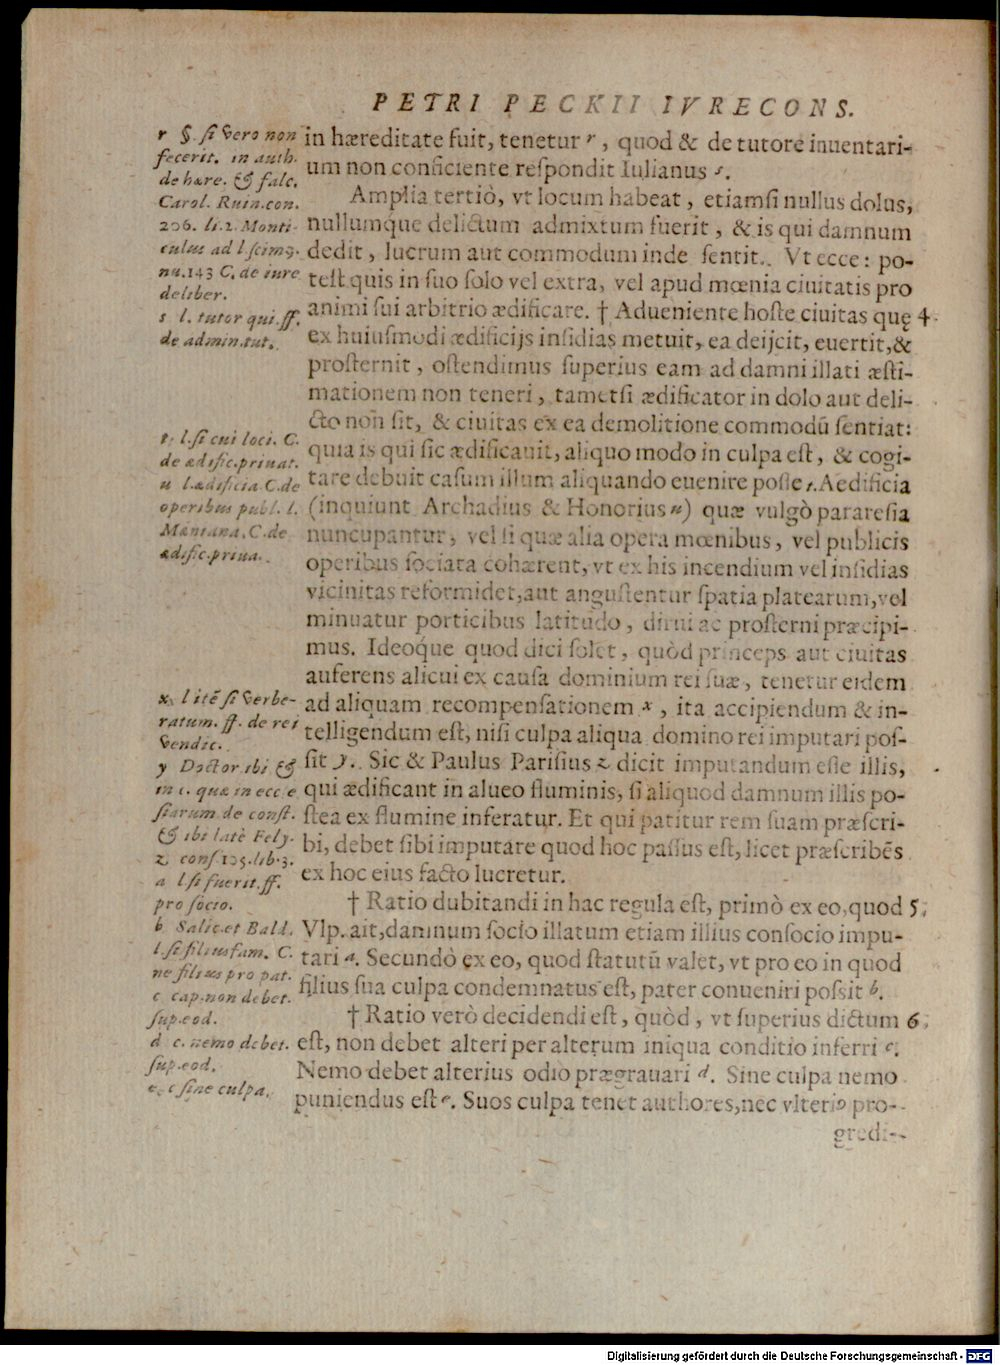 PETRI PECKII IVRECONS.
in hæreditate fuit, tenetur r, quod & de tutore inuentari-
um non conficiente reſpondit Iulianus s.
Amplia tertiò, vt locum habeat, etiamſi nullus dolus,
nullumq́ue delictum admixtum fuerit, & is qui damnum
dedit, lucrum aut commodum inde ſentit. Vt ecce: po-
teſt quis in ſuo ſolo vel extra, vel apud mœnia ciuitatis pro
animi ſui arbitrio ædificare. † Adueniente hoſte ciuitas quę 4
ex huiuſmodi ædificijs inſidias metuit, ea deijcit, euertit, &
proſternit, oſtendimus ſuperius eam ad damni illati æſti-
mationem non teneri, tametſi ædificator in dolo aut deli-
cto non ſit, & ciuitas ex ea demolitione commodū ſentiat:
quia is qui ſic ædificauit, aliquo modo in culpa eſt, & cogi-
tare debuit caſum illum aliquando euenire poſſe t. Aedificia
(inquiunt Archadius & Honorius u) quæ vulgò parareſia
nuncupantur, vel ſi quæ alia opera mœnibus, vel publicis
operibus ſociata cohærent, vt ex his incendium vel inſidias
vicinitas reformidet, aut anguſtentur ſpatia platearum, vel
minuatur porticibus latitudo, dirui ac proſterni præcipi-
mus. Ideoq́ue quod dici ſolet, quòd princeps aut ciuitas
auferens alicui ex cauſa dominium rei ſuæ, tenetur eidem
ad aliquam recompenſationem x, ita accipiendum & in-
telligendum eſt, niſi culpa aliqua domino rei imputari poſ-
ſit y. Sic & Paulus Pariſius z dicit imputandum eſſe illis,
qui ædificant in alueo fluminis, ſi aliquod damnum illis po-
ſtea ex flumine inferatur. Et qui patitur rem ſuam præſcri-
bi, debet ſibi imputare quod hoc paſſus eſt, licet præſcribēs
ex hoc eius facto lucretur.
† Ratio dubitandi in hac regula eſt, primò ex eo, quod 5
Vlp. ait, damnum ſocio illatum etiam illius conſocio impu-
tari a. Secundò ex eo, quod ſtatutū valet, vt pro eo in quod
filius ſua culpa condemnatus eſt, pater conueniri poſsit b.
† Ratio verò decidendi eſt, quòd, vt ſuperius dictum 6
eſt, non debet alteri per alterum iniqua conditio inferri c.
Nemo debet alterius odio prægrauari d. Sine culpa nemo
puniendus eſt e. Suos culpa tenet authores, nec vlterio pro-
gredi-
r §. ſi vero non
fecerit. in auth.
de hære. & falc.
Carol. Ruin. con.
206. li. 2. Monti-
culus ad l. ſcimꝰ.
nu. 143 C. de iure
deliber.
s l. tutor qui. ff.
de admin. tut.
t l. ſi cui loci. C.
de ædific. priuat.
u l. ædificia C. de
operibus publ. l.
Mœniana. C. de
ædific. priua.
x l. itē ſi verbe-
ratum. ff. de rei
vendic.
y Doctor. ibi &
in c. quæ in eccle
ſiarum de conſt.
& ibi latè Fely.
z conſ. 125. lib. 3.
a l. ſi fuerit. ff.
pro ſocio.
b Salic. et Bald.
l. ſi filiusfam. C.
ne filius pro pat.
c cap. non debet.
ſup. eod.
d c. nemo debet.
ſup. eod.
e c. ſine culpa.
Digitalisierung gefördert durch die Deutsche Forschungsgemeinschaft - DFG